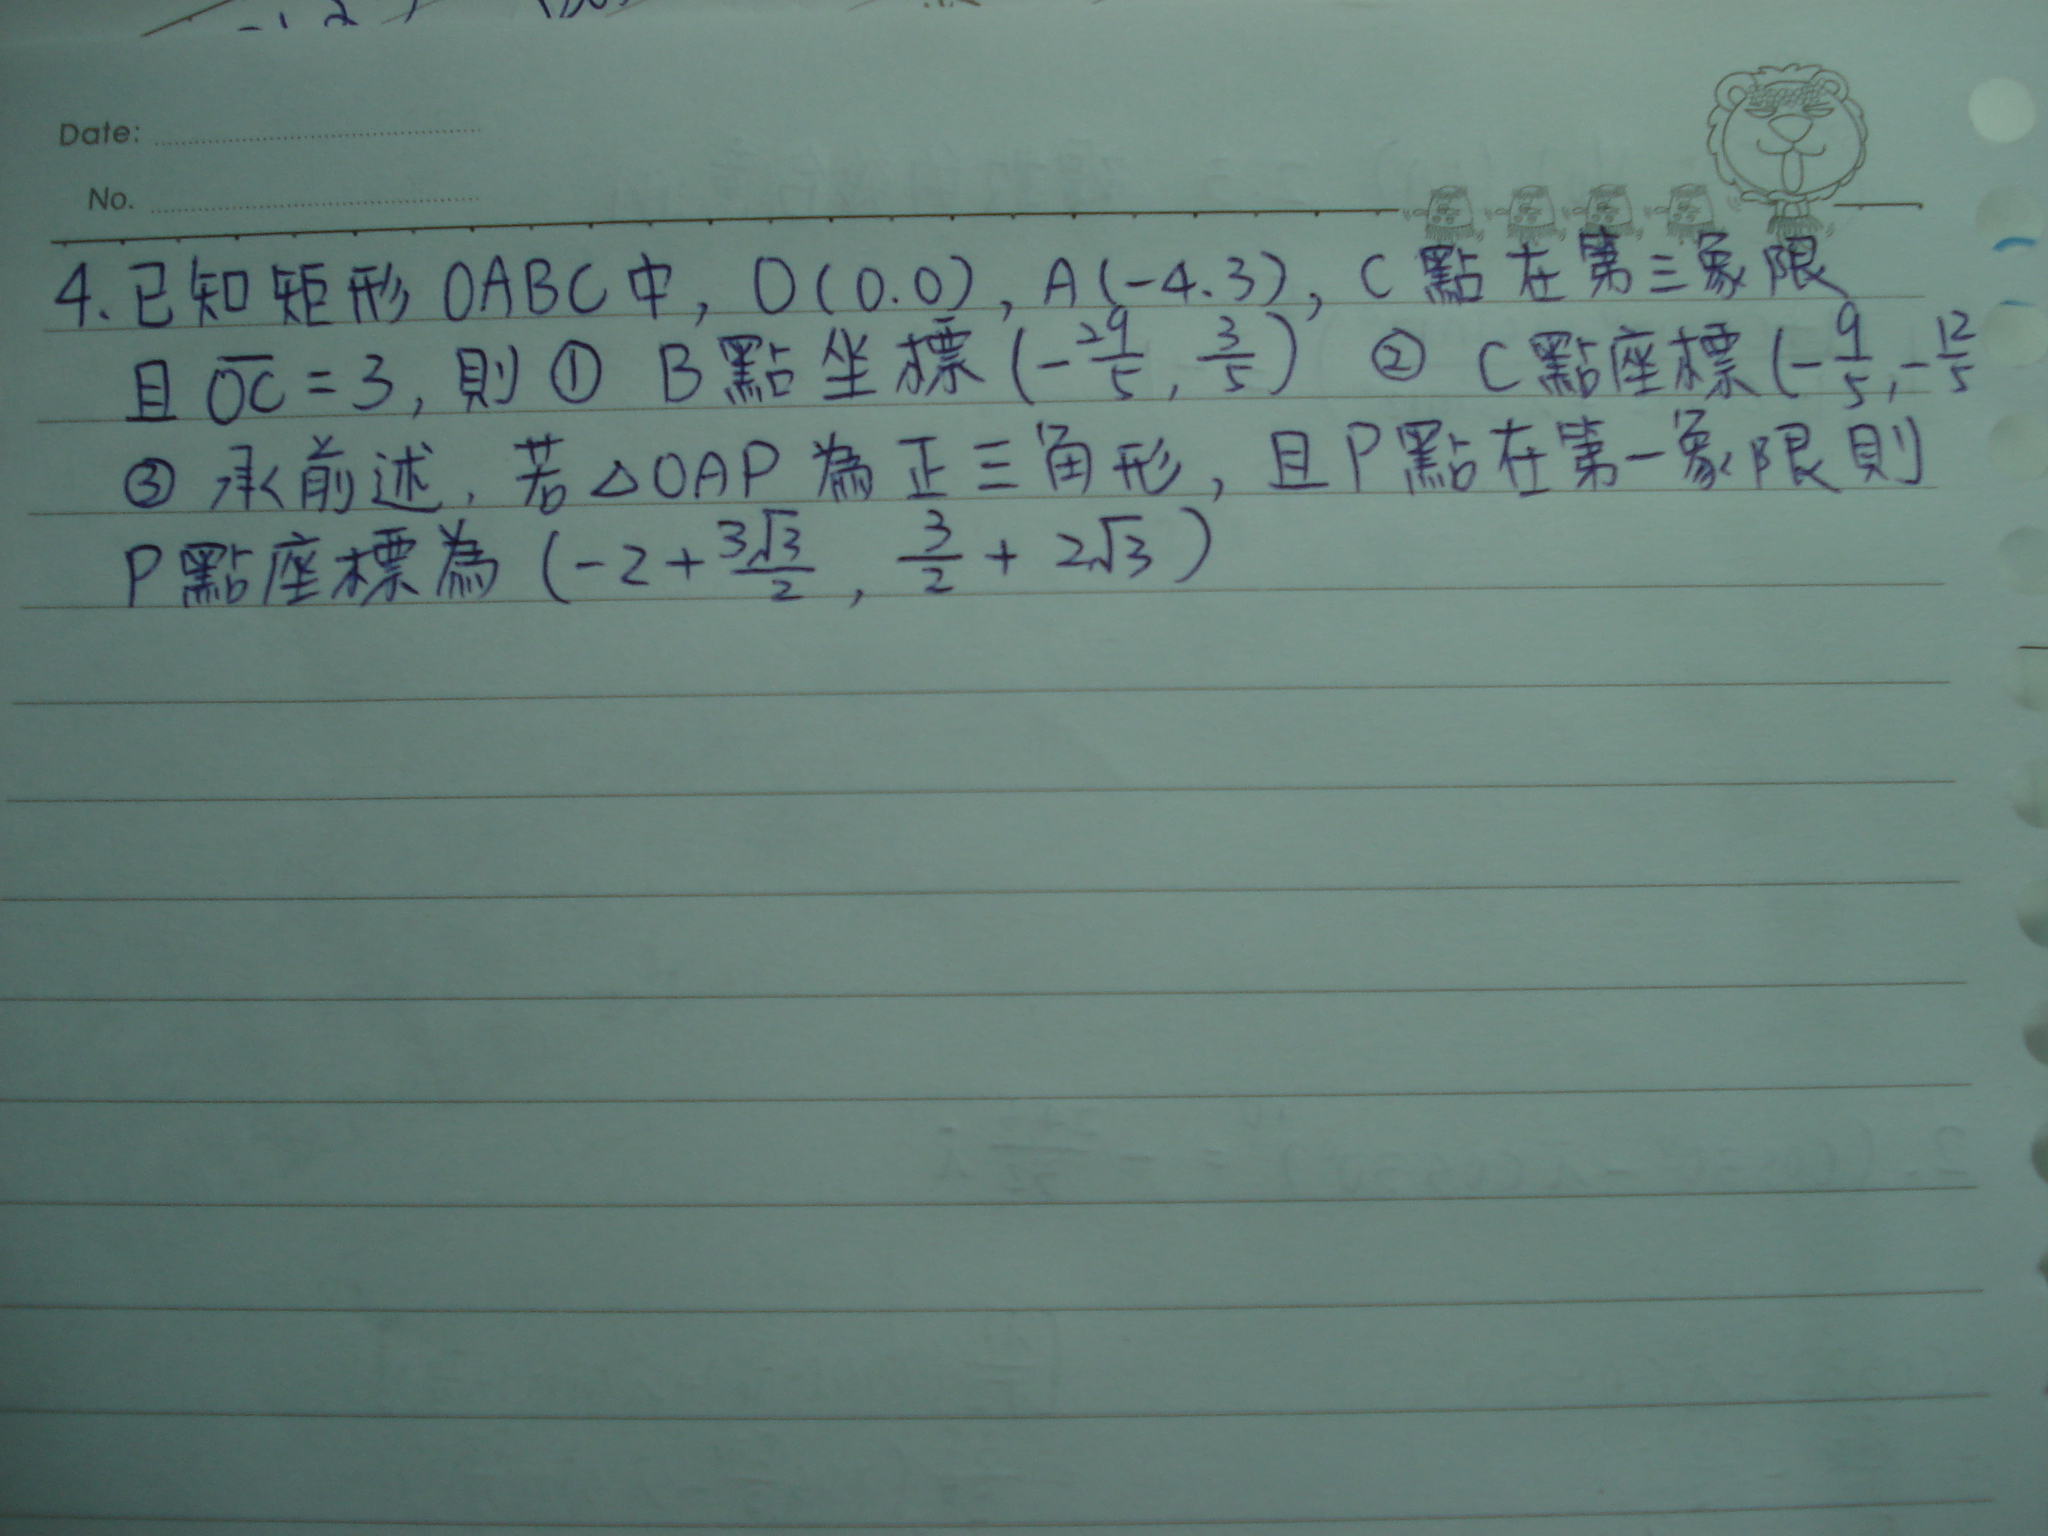 Date:
No.
4. 已知矩形 OABC 中, O(0.0), A(-4.3), C 點在第三象限
且 OC = 3, 則 ① B 點坐標 (-29/5, 3/5) ② C 點座標 (-9/5, -12/5
③ 承前述, 若 △OAP 為正三角形, 且 P 點在第一象限則
P 點座標為 (-2 + 3√3/2, 3/2 + 2√3)